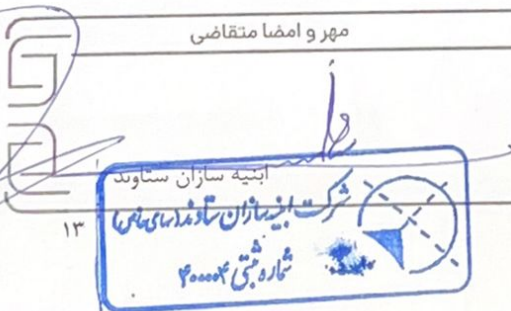 مهر و امضا متقاضی
ابنیه سازان ستاوند
شرکت ابنیه سازان ستاوند (سهامی خاص)
شماره ثبتی ۴۰۰۰۰۴
۱۳